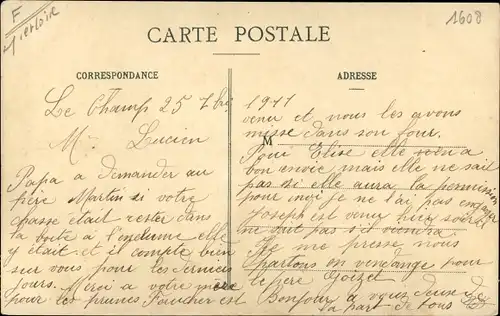 F
1608
CARTE POSTALE
CORRESPONDANCE
ADRESSE
Le Champ 25 7bre 1911
Mr Lucien
Papa a demander au
père Martin si votre
chasse était rester dans
la boite à l'enclume elle
y était et il compte bien
sur vous pour les derniers
jours. Merci a votre mère
pour les prunes Faucher est
venu et nous les avons
M
misse dans son four.
Pour Elise elle
bon envoie mais elle ne sait
pas si elle aura la permission
pour ici je ne l'ai pas
Joseph est venu hier soir il
ne dit pas s'il viendra.
Je me presse nous
partons en vendange pour
le père Goizet
Bonjour a vous deux de
la part de tous